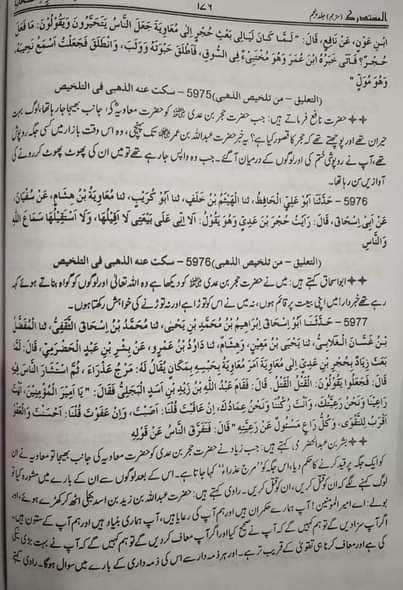 المستدرک (مترجم) جلد پنجم ١٧٦
ابْنِ عَوْنٍ، عَنْ نَافِعٍ، قَالَ: "لَمَّا كَانَ لَيَالِي بَعْثِ حُجْرٍ اِلٰى مُعَاوِيَةَ جَعَلَ النَّاسُ يَتَحَيَّرُونَ وَيَقُوْلُوْنَ: مَا فَعَلَ
حُجْرٌ؟ فَاَتٰى خَبَرُهُ ابْنَ عُمَرَ وَهُوَ مُخْتَبِءٌ فِي السُّوقِ، فَاَطْلَقَ حَبْوَتَهُ وَوَثَبَ، وَانْطَلَقَ فَجَعَلْتُ اَسْمَعُ نَحِيبَهُ،
وَهُوَ مُوَلٍّ"
(التعليق – من تلخيص الذهبي)5975 – سكت عنه الذهبي في التلخيص
❖❖ حضرت نافع فرماتے ہیں: جب حضرت حجر بن عدی کو حضرت معاویہ کی جانب بھیجا جا رہا تھا، لوگ بہت
حیران تھے اور پوچھتے تھے کہ حجر کا قصور کیا ہے؟ یہ خبر حضرت عبداللہ بن عمر تک پہنچی، وہ اس وقت بازار میں کسی جگہ روپوش
تھے، آپ نے روپوشی ختم کی اور لوگوں کے درمیان آ گئے۔ جب وہ واپس جا رہے تھے تو میں ان کی پھوٹ پھوٹ کر رونے کی
آوازیں سن رہا تھا۔
5976 – حَدَّثَنَا اَبُو عَلِيٍّ الْحَافِظُ، ثنا الْهَيْثَمُ بْنُ خَلَفٍ، ثنا اَبُو كُرَيْبٍ، ثنا مُعَاوِيَةُ بْنُ هِشَامٍ، عَنْ سُفْيَانَ،
عَنْ اَبِي اِسْحَاقَ، قَالَ: رَاَيْتُ حُجْرَ بْنَ عَدِيٍّ وَهُوَ يَقُوْلُ: اَلَا اِنِّي عَلٰى بَيْعَتِي لَا اُقِيلُهَا، وَلَا اَسْتَقِيلُهَا سَمَاعَ اللّٰهِ
وَالنَّاسِ
(التعليق – من تلخيص الذهبي)5976 – سكت عنه الذهبي في التلخيص
❖❖ ابواسحاق کہتے ہیں: میں نے حضرت حجر بن عدی کو دیکھا ہے وہ اللہ تعالیٰ اور لوگوں کو گواہ بناتے ہوئے کہہ
رہے تھے خبردار! میں اپنی بیعت پر قائم ہوں، نہ میں نے اس کو توڑا ہے اور نہ توڑنے کی خواہش رکھتا ہوں۔
5977 – حَدَّثَنَا اَبُو اِسْحَاقَ اِبْرَاهِيمُ بْنُ مُحَمَّدِ بْنِ يَحْيٰى، ثنا مُحَمَّدُ بْنُ اِسْحَاقَ الثَّقَفِيُّ، ثنا الْمُفَضَّلُ
بْنُ غَسَّانَ الْغَلَابِيُّ، ثنا يَحْيَى بْنُ مَعِينٍ، وَهِشَامٌ، ثنا دَاوُدُ بْنُ عَمْرٍو، عَنْ بِشْرِ بْنِ عَبْدِ الْحَضْرَمِيِّ، قَالَ: لَمَّا
بَعَثَ زِيَادٌ بِحُجْرِ بْنِ عَدِيٍّ اِلٰى مُعَاوِيَةَ اَمَرَ مُعَاوِيَةُ بِحَبْسِهِ بِمَكَانٍ يُقَالُ لَهُ: مَرْجُ عَذْرَاءَ، ثُمَّ اسْتَشَارَ النَّاسَ فِيهِ
قَالَ: فَجَعَلُوا يَقُوْلُوْنَ: الْقَتْلَ الْقَتْلَ. قَالَ: فَقَامَ عَبْدُ اللّٰهِ بْنُ زَيْدِ بْنِ اَسَدٍ الْبَجَلِيُّ فَقَالَ: "يَا اَمِيْرَ الْمُؤْمِنِيْنَ، اَنْتَ
رَاعِينَا وَنَحْنُ رَعِيَّتُكَ، وَاَنْتَ رُكْنُنَا وَنَحْنُ عِمَادُكَ، اِنْ عَاقَبْتَ قُلْنَا: اَصَبْتَ، وَاِنْ عَفَوْتَ قُلْنَا: اَحْسَنْتَ وَالْعَفْوُ
اَقْرَبُ لِلتَّقْوٰى، وَكُلُّ رَاعٍ مَسْئُولٌ عَنْ رَعِيَّتِهِ" قَالَ: فَتَفَرَّقَ النَّاسُ عَنْ قَوْلِهِ
❖❖ بشر بن عبدالحضرمی کہتے ہیں: جب زیاد نے حضرت حجر بن عدی کو حضرت معاویہ کی جانب بھیجا تو معاویہ نے ان
کو ایک جگہ پر قید کرنے کا حکم دیا، اس جگہ کو "مرج عذراء" کہا جاتا ہے۔ اس کے بعد لوگوں سے ان کے بارے میں مشورہ کیا تو
لوگ کہنے لگے کہ ان کو قتل کریں، ان کو قتل کریں۔ راوی کہتے ہیں: حضرت عبداللہ بن زید بن اسد بجلی اٹھ کر کھڑے ہوئے، اور
بولے: اے امیر المومنین! آپ ہمارے حکمران ہیں اور ہم آپ کی رعایا ہیں، آپ ہماری بنیاد ہیں اور ہم آپ کے ستون ہیں۔
اگر آپ سزا دیں گے تو ہم کہیں گے کہ آپ نے صحیح کیا اور اگر آپ معاف کر دیں گے تو ہم کہیں گے کہ آپ نے بہت بڑی نیکی
کی ہے اور معاف کرنا ہی تقویٰ کے قریب تر ہے۔ اور ہر ذمہ دار سے اس کی ذمہ داری کے بارے میں سوال ہوگا۔ راوی کہتے